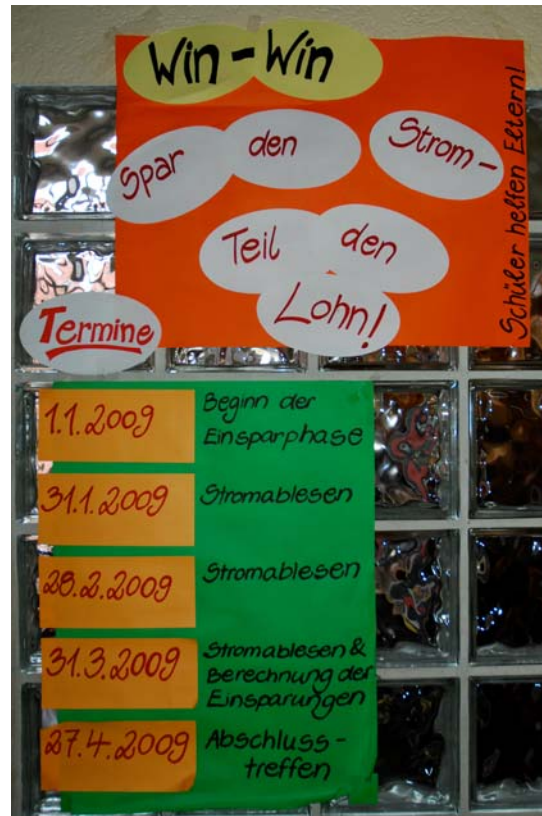 Win-Win
Spar den Strom-
Teil den
Lohn!
Schüler helfen Eltern!
Termine
1.1.2009 Beginn der
Einsparphase
31.1.2009 Stromablesen
28.2.2009 Stromablesen
31.3.2009 Stromablesen &
Berechnung der
Einsparungen
27.4.2009 Abschluss-
treffen